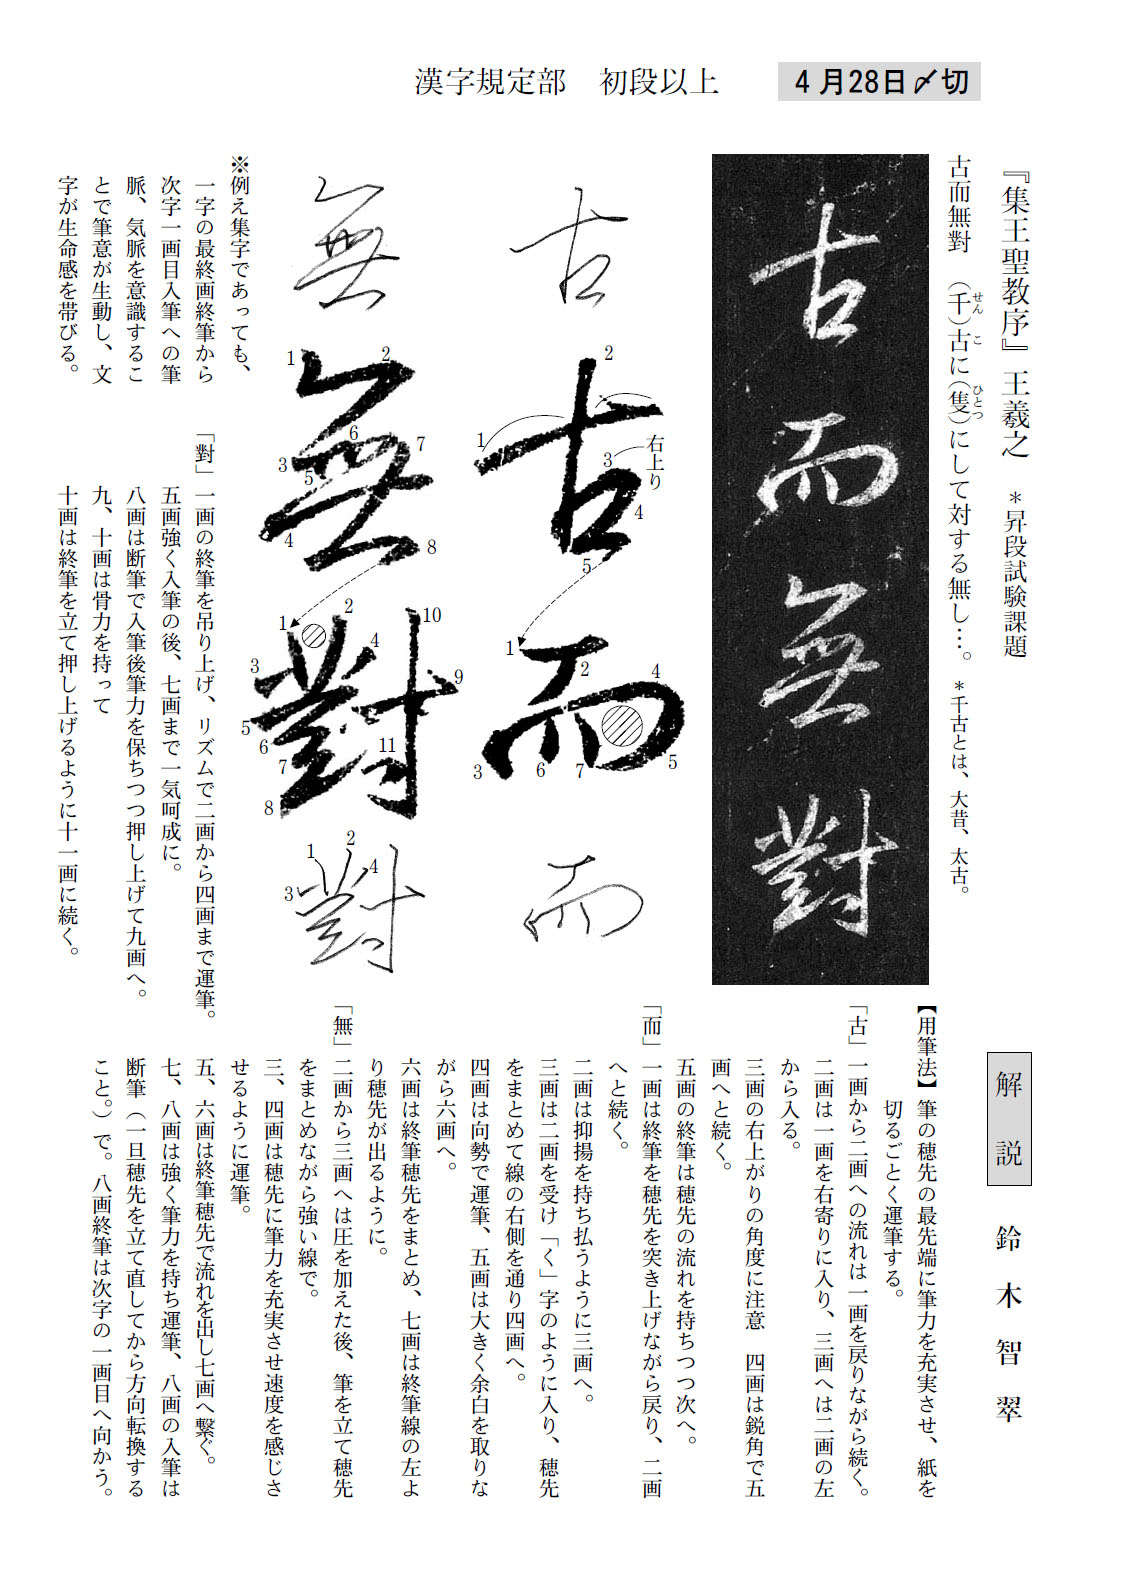 漢字規定部　初段以上
4月28日〆切
『集王聖教序』王羲之　＊昇段試験課題
古而無對　（千）古に（隻）にして対する無し…。　＊千古とは、大昔、太古。
せん　こ　ひとつ
古而無對
古
而
無
對
1
2
3
右上り
4
5
1
2
3
4
5
6
7
1
2
3
4
5
6
7
8
1
2
3
4
5
6
7
8
9
10
11
古
而
無
對
1
2
3
4
※例え集字であっても、
一字の最終画終筆から
次字一画目入筆への筆
脈、気脈を意識するこ
とで筆意が生動し、文
字が生命感を帯びる。
解説　鈴木智翠
【用筆法】筆の穂先の最先端に筆力を充実させ、紙を
切るごとく運筆する。
「古」一画から二画への流れは一画を戻りながら続く。
二画は一画を右寄りに入り、三画へは二画の左
から入る。
三画の右上がりの角度に注意　四画は鋭角で五
画へと続く。
五画の終筆は穂先の流れを持ちつつ次へ。
「而」一画は終筆を穂先を突き上げながら戻り、二画
へと続く。
二画は抑揚を持ち払うように三画へ。
三画は二画を受け「く」字のように入り、穂先
をまとめて線の右側を通り四画へ。
四画は向勢で運筆、五画は大きく余白を取りな
がら六画へ。
六画は終筆穂先をまとめ、七画は終筆線の左よ
り穂先が出るように。
「無」二画から三画へは圧を加えた後、筆を立て穂先
をまとめながら強い線で。
三、四画は穂先に筆力を充実させ速度を感じさ
せるように運筆。
五、六画は終筆穂先で流れを出し七画へ繋ぐ。
七、八画は強く筆力を持ち運筆、八画の入筆は
断筆（一旦穂先を立て直してから方向転換する
こと。）で。八画終筆は次字の一画目へ向かう。
「對」一画の終筆を吊り上げ、リズムで二画から四画まで運筆。
五画強く入筆の後、七画まで一気呵成に。
八画は断筆で入筆後筆力を保ちつつ押し上げて九画へ。
九、十画は骨力を持って
十画は終筆を立て押し上げるように十一画に続く。